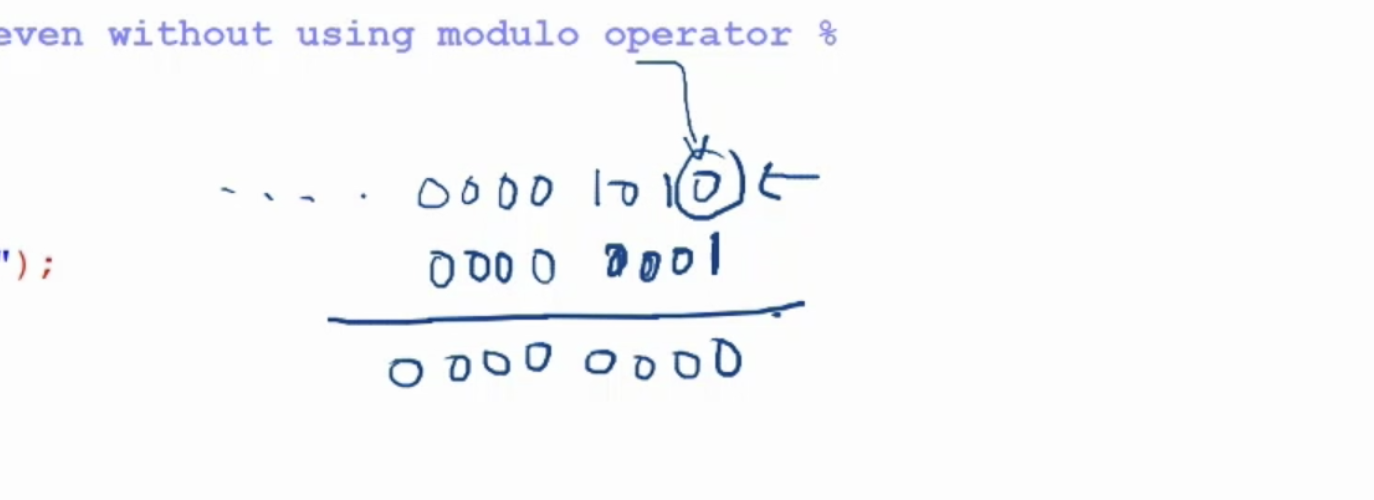 even without using modulo operator %
.... 0000 1010
");
0000 0001
0000 0000